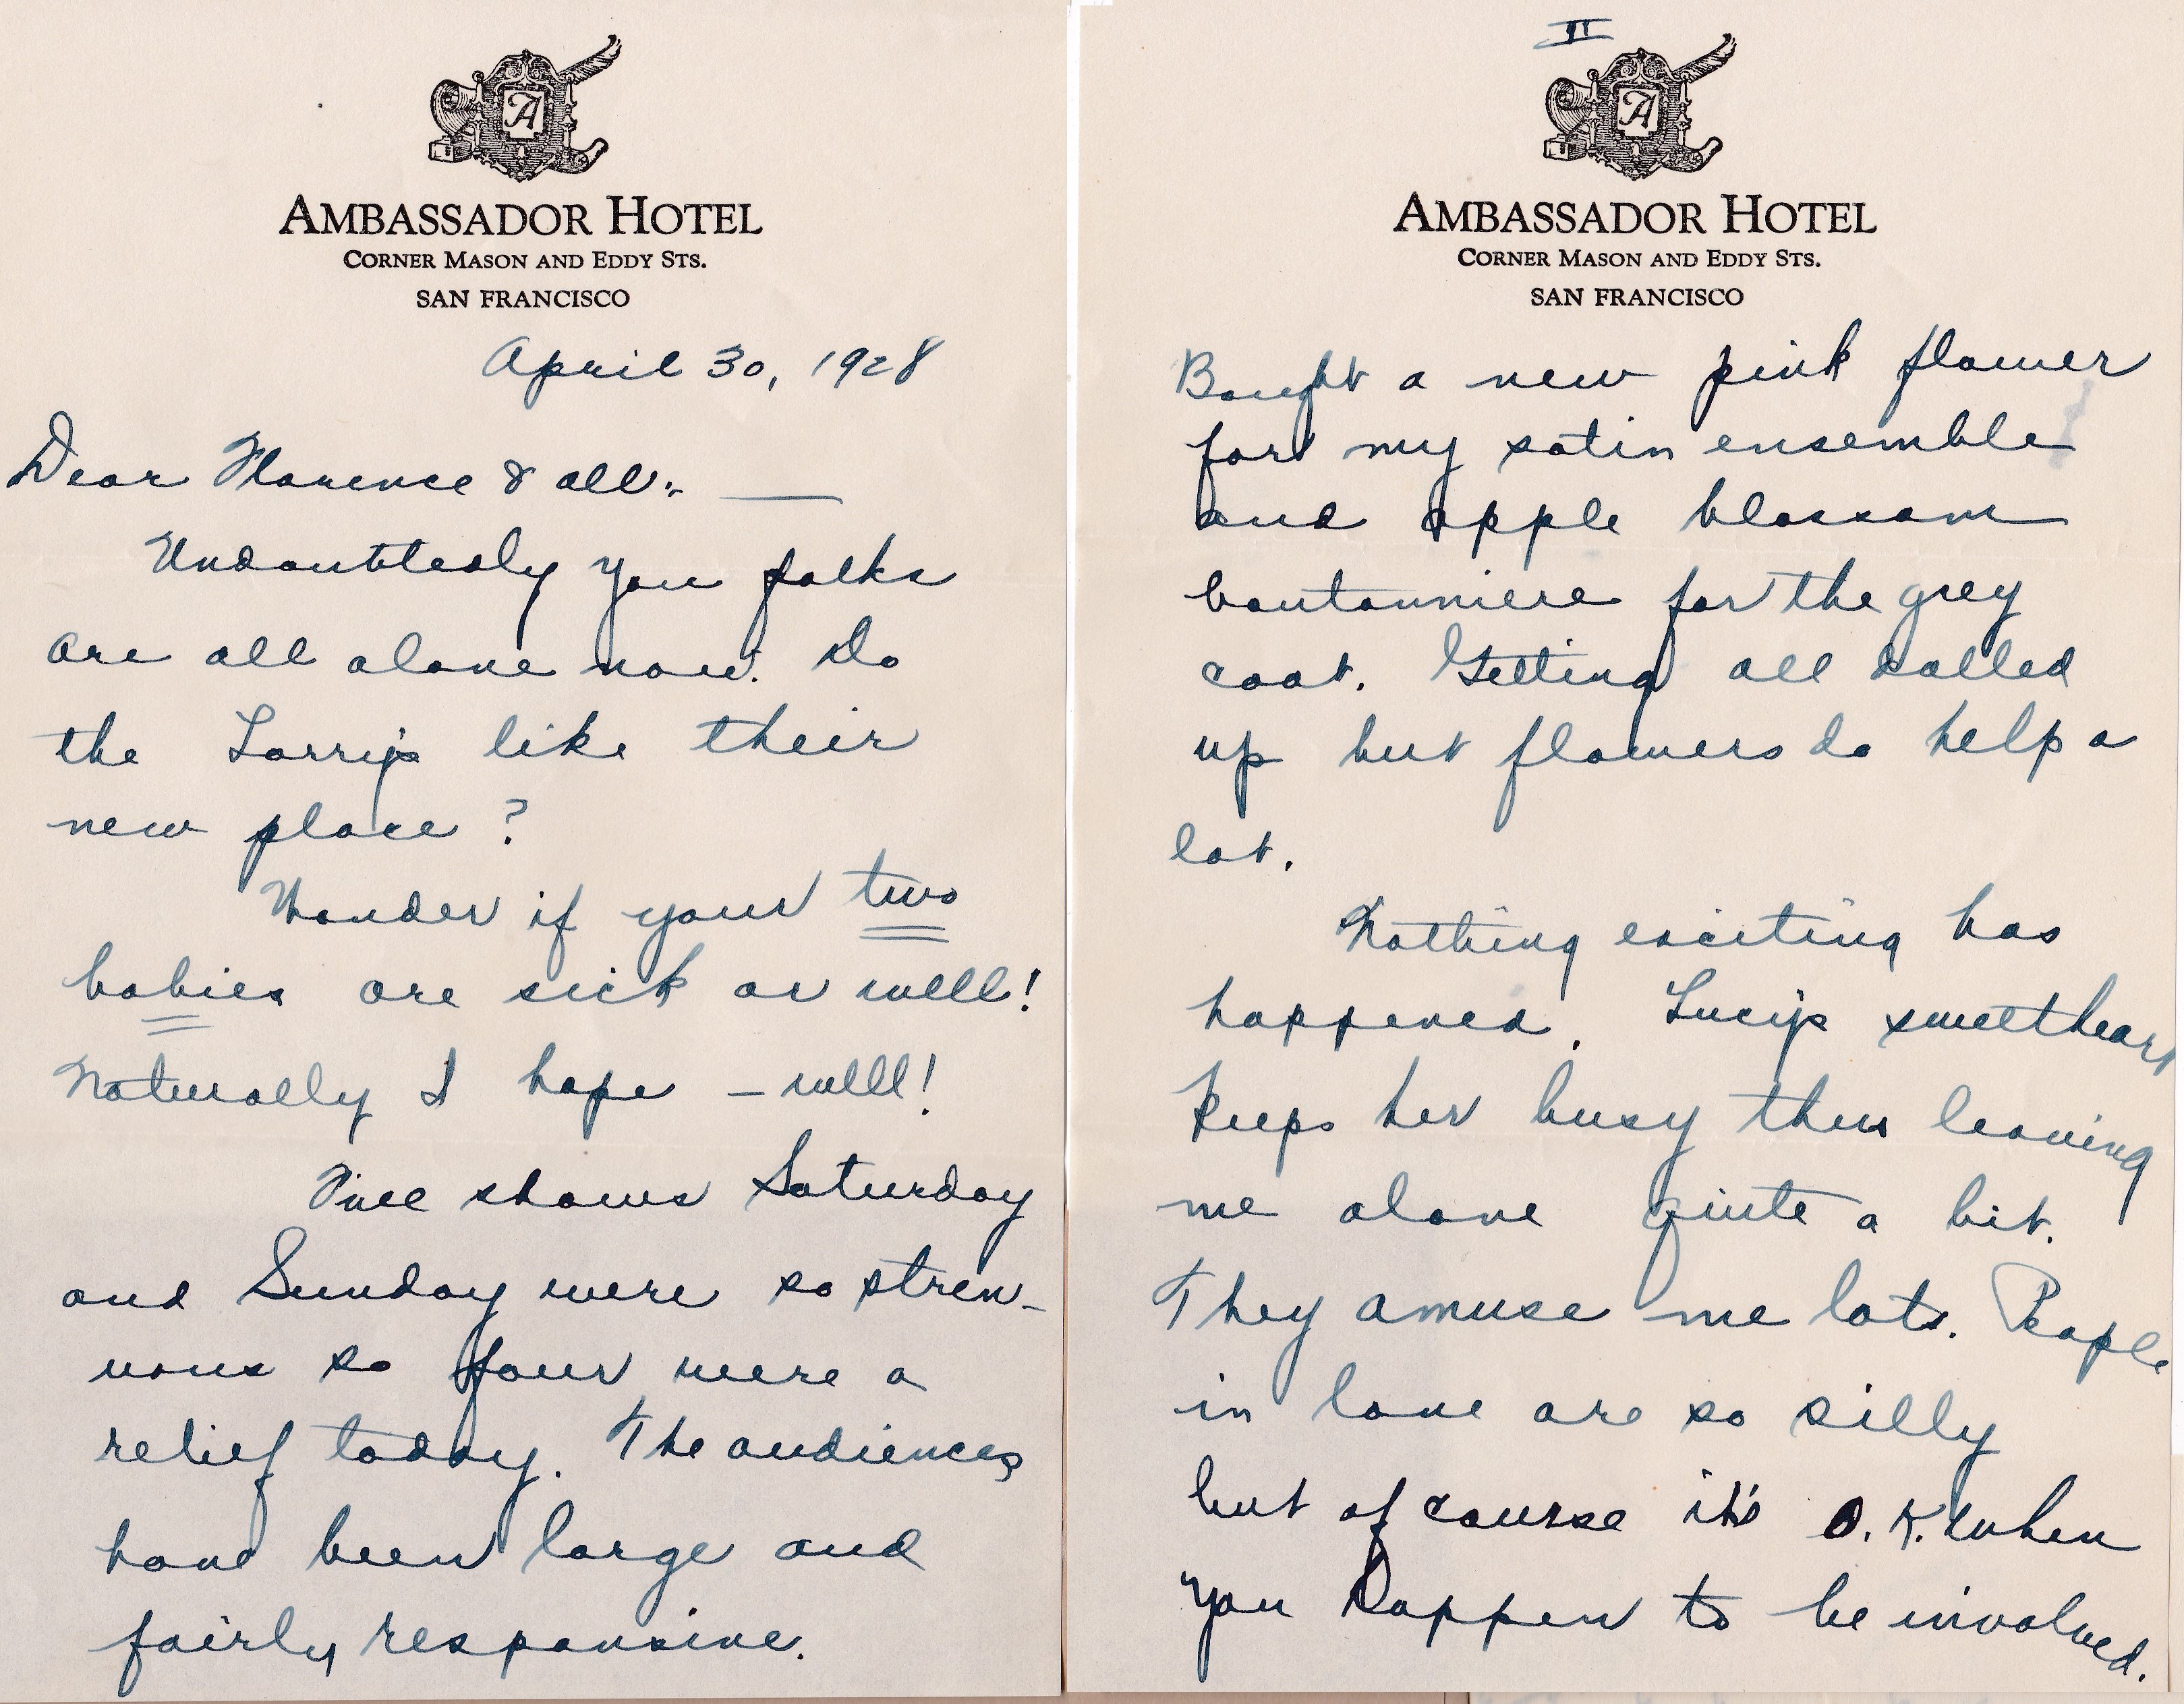 A
AMBASSADOR HOTEL
CORNER MASON AND EDDY STS.
SAN FRANCISCO
April 30, 1928
Dear Florence & all:-
Undoubtedly you folks
are all alone now. Do
the Larry's like their
new place?
Wonder if your two
babies are sick or well!
Naturally I hope - well!
Five shows Saturday
and Sunday were so stren-
uous so four were a
relief today. The audiences
have been large and
fairly responsive.
II
A
AMBASSADOR HOTEL
CORNER MASON AND EDDY STS.
SAN FRANCISCO
Bought a new pink flower
for my satin ensemble
and apple blossom
boutonniere for the grey
coat. Getting all dolled
up but flowers do help a
lot.
Nothing exciting has
happened. Lucy's sweetheart
keeps her busy thus leaving
me alone quite a bit.
They amuse me lots. People
in love are so silly
but of course it's O.K. when
you happen to be involved.